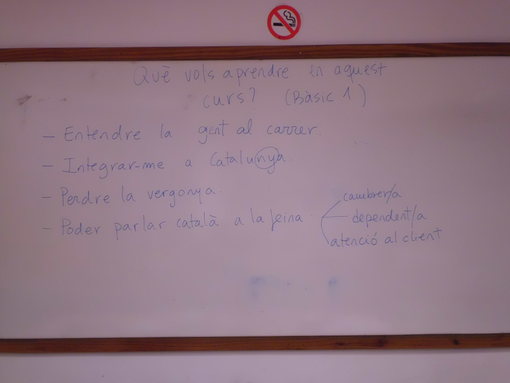 Què vols aprendre en aquest
curs? (Bàsic 1)
- Entendre la gent al carrer.
- Integrar-me a Catalunya.
- Perdre la vergonya.
- Poder parlar català a la feina
cambrer/a
dependent/a
atenció al client